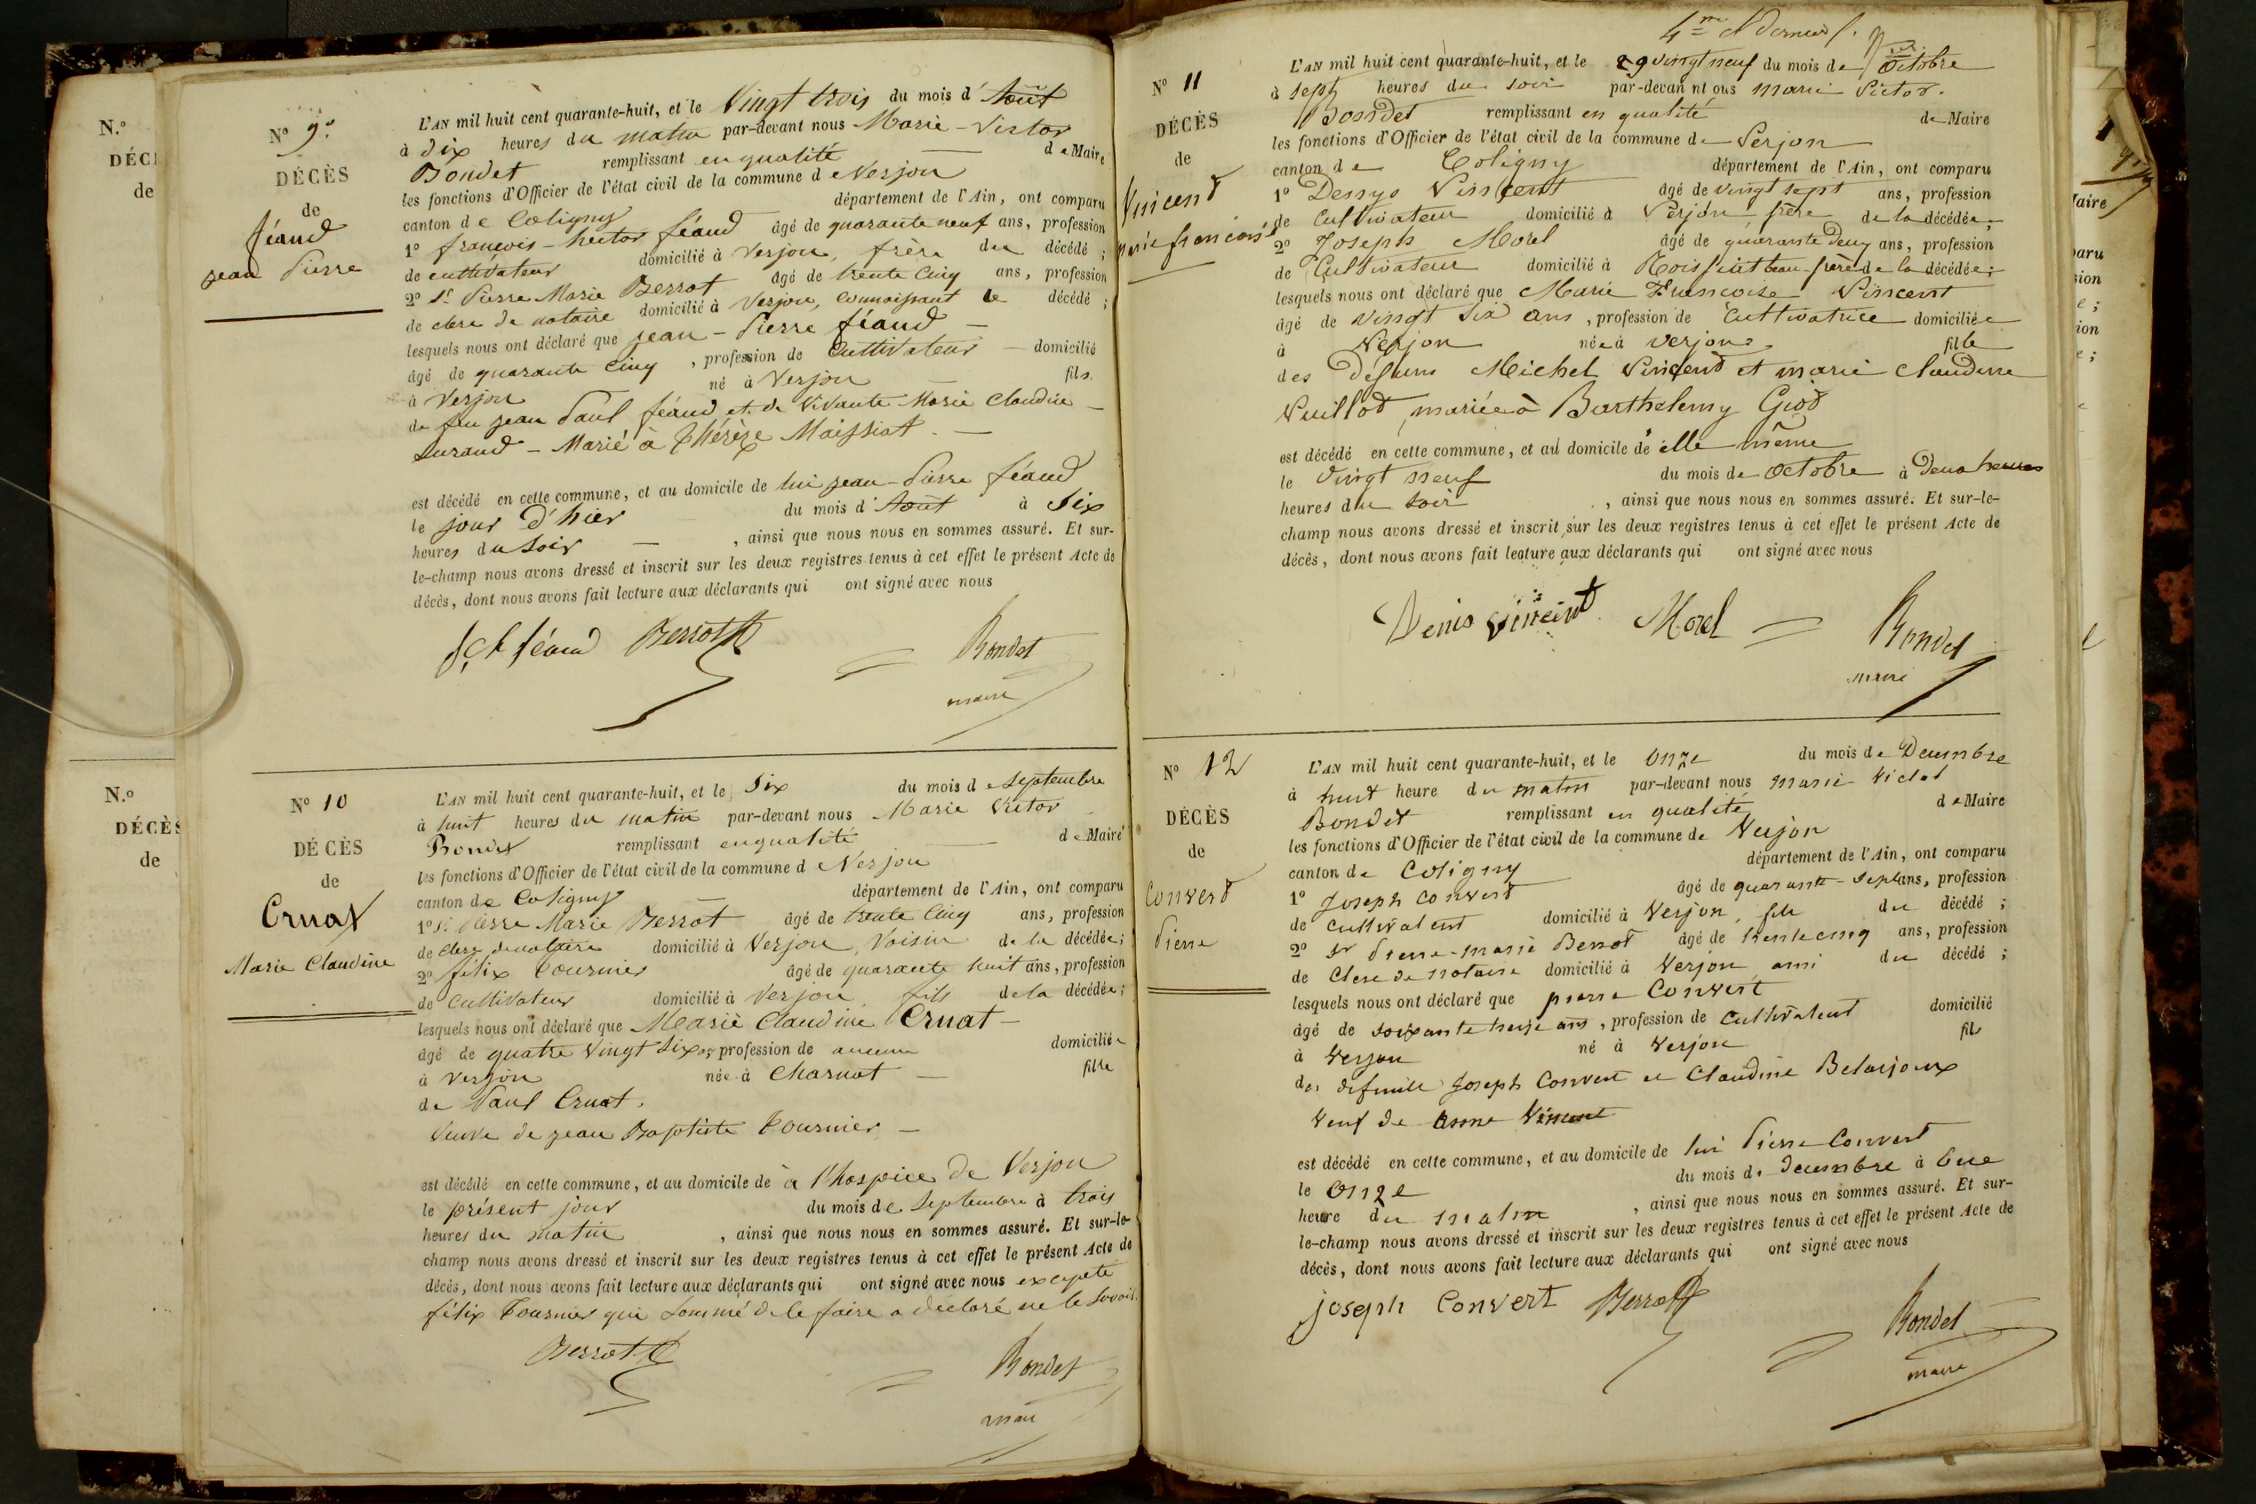 N.º
DÉC
de
N.º
DÉCÈS
de
Nº 9.
DÉCÈS
de
féaud
jean Pierre
L'AN mil huit cent quarante-huit, et le Vingt trois du mois d'Août
à dix heures du matin par-devant nous Marie-Victor
Bondet remplissant en qualité de Maire
les fonctions d'Officier de l'état civil de la commune de Verjon
canton de Coligny département de l'Ain, ont comparu
1º françois-hector féaud âgé de quarante neuf ans, profession
de cultivateur domicilié à Verjon, frère du décédé ;
2º Sr Pierre Marie Berrot âgé de trente cinq ans, profession
de clerc de notaire domicilié à Verjon, connaissant le décédé ;
lesquels nous ont déclaré que jean-Pierre féaud
âgé de quarante cinq , profession de Cultivateur domicilié
à Verjon né à Verjon fils
de feu jean Paul féaud et de Vivante Marie Claudine
Durand - Marié à Thérèze Maissiat.
est décédé en cette commune, et au domicile de lui jean-Pierre féaud
le jour d'hier du mois d'Août à Six
heures du Soir , ainsi que nous nous en sommes assuré. Et sur-
le-champ nous avons dressé et inscrit sur les deux registres tenus à cet effet le présent Acte de
décès, dont nous avons fait lecture aux déclarants qui ont signé avec nous
féaud Berrot Bondet
maire
Nº 10
DÉCÈS
de
Cruat
Marie Claudine
L'AN mil huit cent quarante-huit, et le Six du mois de Septembre
à huit heures du matin par-devant nous Marie Victor
Bondet remplissant en qualité de Maire
les fonctions d'Officier de l'état civil de la commune de Verjon
canton de Coligny département de l'Ain, ont comparu
1º Sr Pierre Marie Berrot âgé de trente Cinq ans, profession
de clerc de notaire domicilié à Verjon, Voisin de la décédée ;
2º félix Tournier âgé de quarante huit ans, profession
de Cultivateur domicilié à Verjon, fils de la décédée ;
lesquels nous ont déclaré que Marie Claudine Cruat
âgé de quatre Vingt Six ans profession de aucune domiciliée
à Verjon née à Charnat fille
de Paul Cruat.
Veuve de jean Baptiste Tournier
est décédé en cette commune, et au domicile de à l'hospice de Verjon
le présent jour du mois de Septembre à trois
heures du matin , ainsi que nous nous en sommes assuré. Et sur-le-
champ nous avons dressé et inscrit sur les deux registres tenus à cet effet le présent Acte de
décès, dont nous avons fait lecture aux déclarants qui ont signé avec nous excepté
félix Tournier qui sommé de le faire a déclaré ne le Savoir.
Berrot Bondet
4me et dernier f.
Nº 11
DÉCÈS
de
Vincent
marie francoise
L'AN mil huit cent quarante-huit, et le 29 vingt neuf du mois de Octobre
à sept heures du soir par-devant nous marie Victor.
Bondet remplissant en qualité de Maire
les fonctions d'Officier de l'état civil de la commune de Verjon
canton de Coligny département de l'Ain, ont comparu
1º Denys Vincent âgé de vingt sept ans, profession
de Cultivateur domicilié à Verjon frère de la décédée ;
2º Joseph Morel âgé de quarante Deux ans, profession
de Cultivateur domicilié à Roissiat beau-frère de la décédée ;
lesquels nous ont déclaré que Marie Francoise Vincent
âgé de Vingt six ans , profession de Cultivatrice domiciliée
à Verjon née à Verjon fille
des Défunts Michel Vincent et marie Claudine
Vuillod, mariée à Barthelemy Giod
est décédé en cette commune, et au domicile de elle même
le Vingt neuf du mois de octobre à Deux heures
heures du soir , ainsi que nous nous en sommes assuré. Et sur-le-
champ nous avons dressé et inscrit sur les deux registres tenus à cet effet le présent Acte de
décès, dont nous avons fait lecture aux déclarants qui ont signé avec nous
Denis Vincent Morel Bondet
maire
Nº 12
DÉCÈS
de
Convert
Pierre
L'AN mil huit cent quarante-huit, et le onze du mois de Decembre
à huit heure du matin par-devant nous marie Victor
Bondet remplissant en qualité de Maire
les fonctions d'Officier de l'état civil de la commune de Verjon
canton de Coligny département de l'Ain, ont comparu
1º Joseph Convert âgé de quarante-sept ans, profession
de Cultivateur domicilié à Verjon, fils du décédé ;
2º Sr Pierre-marie Berrot âgé de trente cinq ans, profession
de Clerc de notaire domicilié à Verjon, ami du décédé ;
lesquels nous ont déclaré que pierre Convert
âgé de soixante treize ans , profession de Cultivateur domicilié
à Verjon né à Verjon fils
des defunts Joseph Convert et Claudine
veuf de anne Vincent
est décédé en cette commune, et au domicile de lui Pierre Convert
le onze du mois de decembre à une
heure du matin , ainsi que nous nous en sommes assuré. Et sur-
le-champ nous avons dressé et inscrit sur les deux registres tenus à cet effet le présent Acte de
décès, dont nous avons fait lecture aux déclarants qui ont signé avec nous
joseph Convert Berrot Bondet
maire